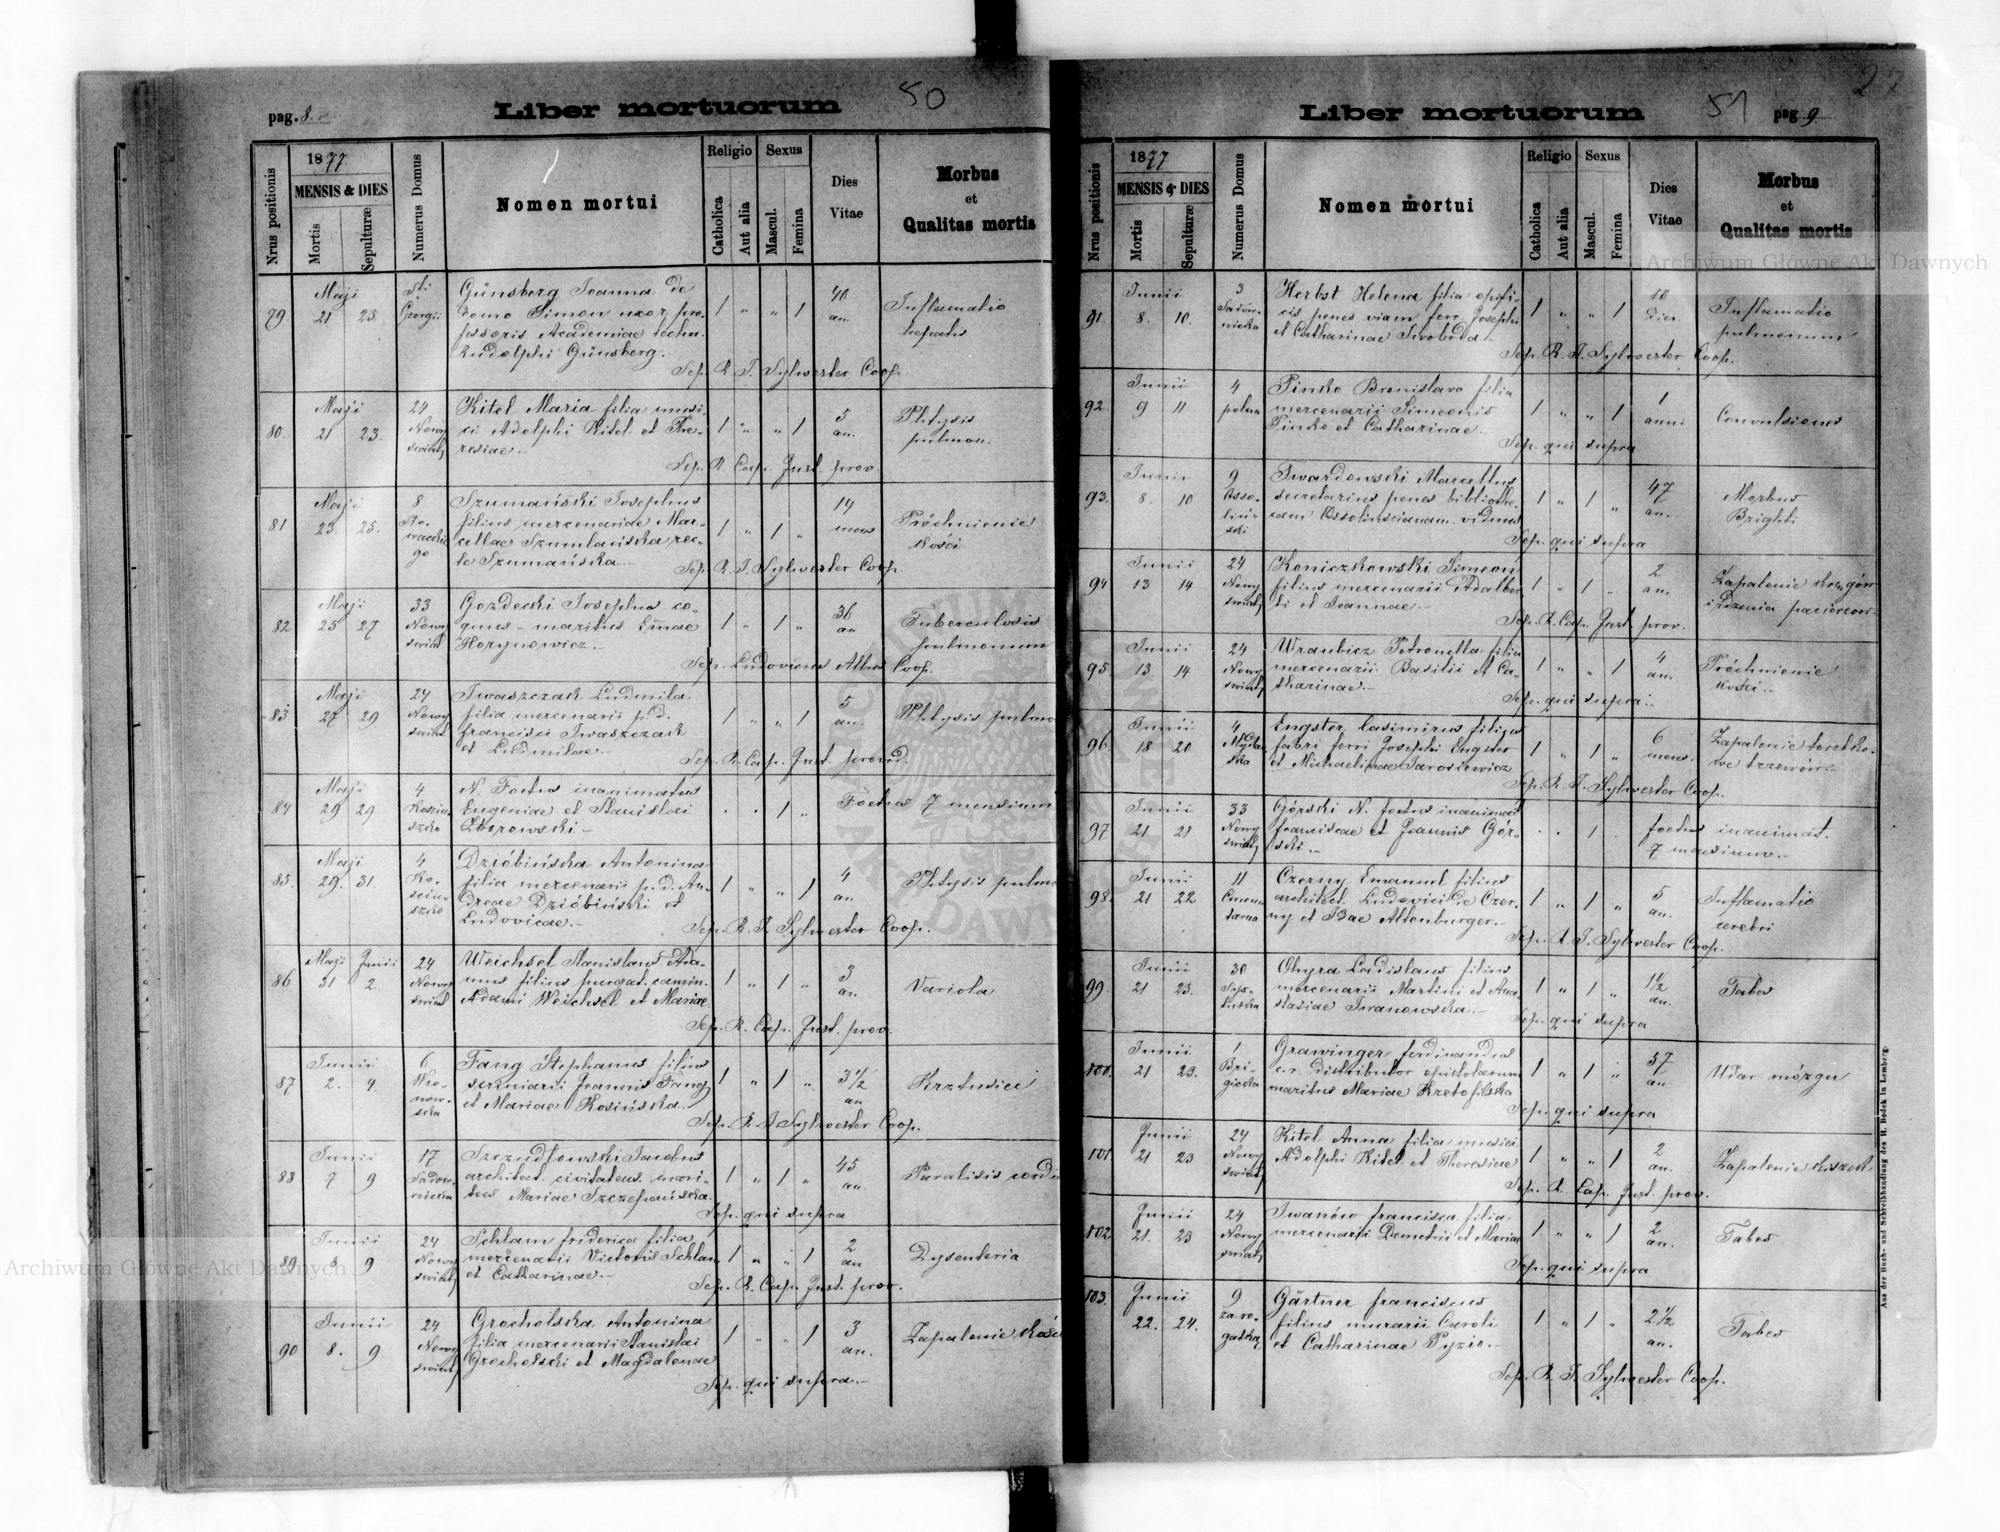 pag. 8.
Liber mortuorum
50
Nrus positionis
1877
MENSIS & DIES
Mortis
Sepulturæ
Numerus Domus
Nomen mortui
Religio
Catholica
Aut alia
Sexus
Mascul.
Femina
Dies
Vitae
Morbus
et
Qualitas mortis
79
Maji
21 23.
Sti
Georgii
Günsberg Joanna de
domo Simon uxor pro-
fessoris Academiae techn.
Rudolphi Günsberg.
1 " " 1
40
an.
Inflamatio
hepatis
Sep. R. J. Sylwester Coop.
80.
Maji
21 23.
24
Nowy
świat
Kitel Maria filia musi-
ci Adolphi Kitel et The-
resiae.
1 " " 1
5
an.
Phtysis
pulmon.
Sep. R. Casp. Just. prov.
81
Maji
23. 25.
8
Szumański Josephus
filius mercenariae Mar-
cellae Szumlańska rec-
te Szumańska
1 " 1 "
14
mens
Próchnienie
kości
Sep. R. J. Sylwester Coop.
82
Maji
25 27
33
Nowy
świat
Gozdecki Josephus co-
quus - maritus Emae
Horynowicz.
1 " 1 "
36
an
Tuberculosis
pulmonum
Sep. Ludovicus Albus Coop.
83
Maji
27 29
24
Nowy
świat
Iwaszczak Ludmila
filia mercenarii p.d.
Francisci Iwaszczak
et Ludmilae
1 " " 1
5
an.
Phtysis pulmo
Sep. R. Casp. Just. provid.
84
Maji
29 29
4
Kościu
szko
N. Foetus inanimatus
Eugeniae et Stanislai
Zborowski
. . 1 "
Foetus 7 mensium
85.
Maji
29. 31.
4
Ko-
sciu-
szko
Dzióbińska Antonina
filia mercenarii p. d. An-
dreae Dzióbiński et
Ludovicae.
1 " " 1
4
an
Phtysis pulmo
Sep. R. J. Sylwester Coop.
86
Maji Junii
31 2.
24
Nowy
świat
Weichsel Stanislaus Ada-
mus filius purgat. camin.
Adami Weichsel et Mariae
1 " 1 "
3
an.
Variola
Sep. R. Casp. Just. prov.
87
Junii
2. 4.
6
Kro-
now-
ska
Fang Stephanus filius
Joannis Fang
et Mariae Kosińska.
1 " 1 "
3 1/2
an
Krztusiec
Sep. R. J. Sylwester Coop.
88
Junii
7 9
17
Sadow-
nicka
Szczudłowski Jacobus
architect. civitatens. mari-
tus Mariae Szczepańska.
1 " 1 "
45
an.
Paralisis cordis
Sep. qui supra
89
Junii
8 9
24
Nowy
świat
Schlam Friderica filia
mercenarii Victoris Schlam
et Catharinae.
1 " " 1
2
an
Dysenteria
Sep. R. Casp. Just. prov.
90
Junii
8. 9
24
Nowy
świat
Grocholska Antonina
filia mercenarii Stanislai
Grocholski et Magdalenae
1 " " 1
3
an.
Zapalenie
Sep. qui supra.
Liber mortuorum
51
pag. 9
27
Nrus positionis
1877
MENSIS & DIES
Mortis
Sepulturæ
Numerus Domus
Nomen mortui
Religio
Catholica
Aut alia
Sexus
Mascul.
Femina
Dies
Vitae
Morbus
et
Qualitas mortis
91.
Junii
8. 10.
3
Sadow-
nicka
Herbst Helena filia opifi-
cis penes viam ferr. Josephi
et Catharinae Swoboda.
1 " " 1
10
dier.
Inflamatio
pulmonum
Sep. R. J. Sylwester Coop.
92.
Junii
9 11
4
polna
Pinko Bronislava filia
mercenarii Simeonis
Pinko et Catharinae
1 " " 1
1
anni
Convulsiones
Sep. qui supra
93.
Junii
8. 10
9
Osso-
liń-
ski
Twardowski Marcellus
secretarius penes bibliothe-
cam Ossolinscianam viduus
1 " 1 "
47
an.
Morbus
Brighti
Sep. qui supra
94
Junii
13 14
24
Nowy
świat
Koniczkowski Simeon
filius mercenarii Adalber
ti et Joannae.
1 " 1 "
2
an.
Zapalenie
Sep. R. Casp. Just. prov.
95.
Junii
13 14
24
Nowy
świat
Wranbicz Petronella filia
mercenarii Basilii et Ca-
tharinae
1 " " 1
4
an.
Próchnienie
kości
Sep. qui supra
96.
Junii
18 20
4
Engster Casimirus filius
fabri ferri Josephi Engster
et Michaelinae Jarosiewicz
1 " 1 "
6
mens.
Zapalenie
Sep. R. J. Sylwester Coop.
97
Junii
21 21
33
Nowy
świat
Górski N. foetus inanimat
Franciscae et Joannis Gór-
ski.
. . 1
foetus inanimat.
7 mensium.
98.
Junii
21 22
11
Cmen-
tarna
Czerny Emanuel filius
architect. Ludovici de Czer-
ny et Idae Altenburger.
1 " 1 "
5
an.
Inflamatio
cerebri
Sep. R. J. Sylwester Coop.
99
Junii
21 23.
30
Ohyra Ladislaus filius
mercenarii Martini et Ana-
stasiae Iwanowska.
1 " 1 "
1 1/2
an.
Tabes
Sep. qui supra
100.
Junii
21 23.
1
Bri-
gicka
Grawinger Ferdinandus
c.r. distributor epistolarum
maritus Mariae Kretofilska
1 " 1 "
57
an
Udar mózgu
Sep. qui supra
101
Junii
21 23
24
Nowy
świat
Kitel Anna filia musici
Adolphi Kitel et Theresiae
1 " " 1
2
an.
Zapalenie kiszek
Sep. R. Casp. Just. prov.
102
Junii
21. 23
24
Nowy
świat
Iwanów Francisca filia
mercenarii Demetrii et Mariae
1 " " 1
2
an.
Tabes
Sep. qui supra
103.
Junii
22. 24.
9
za ro-
gatką
Gärtner Franciscus
filius murarii Caroli
et Catharinae Pyzio.
1 " 1 "
2 1/2
an.
Tabes
Sep. R. J. Sylwester Coop.
Aus der Buch- und Schreibhandlung des H. Bodek in Lemberg.
Archiwum Główne Akt Dawnych
Archiwum Główne Akt Dawnych